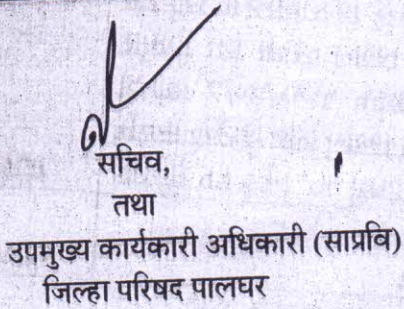 सचिव,
तथा
उपमुख्य कार्यकारी अधिकारी (साप्रवि)
जिल्हा परिषद पालघर